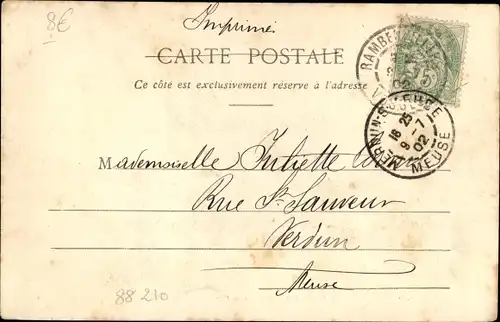 8€
Imprimé
CARTE POSTALE
Ce côté est exclusivement réservé à l'adresse
RAMBE
5
02
VERDUN-S-MEUSE
16 25
9 -7
02
MEUSE
Mademoiselle Juliette
Rue St Sauveur
Verdun
Meuse
88 210